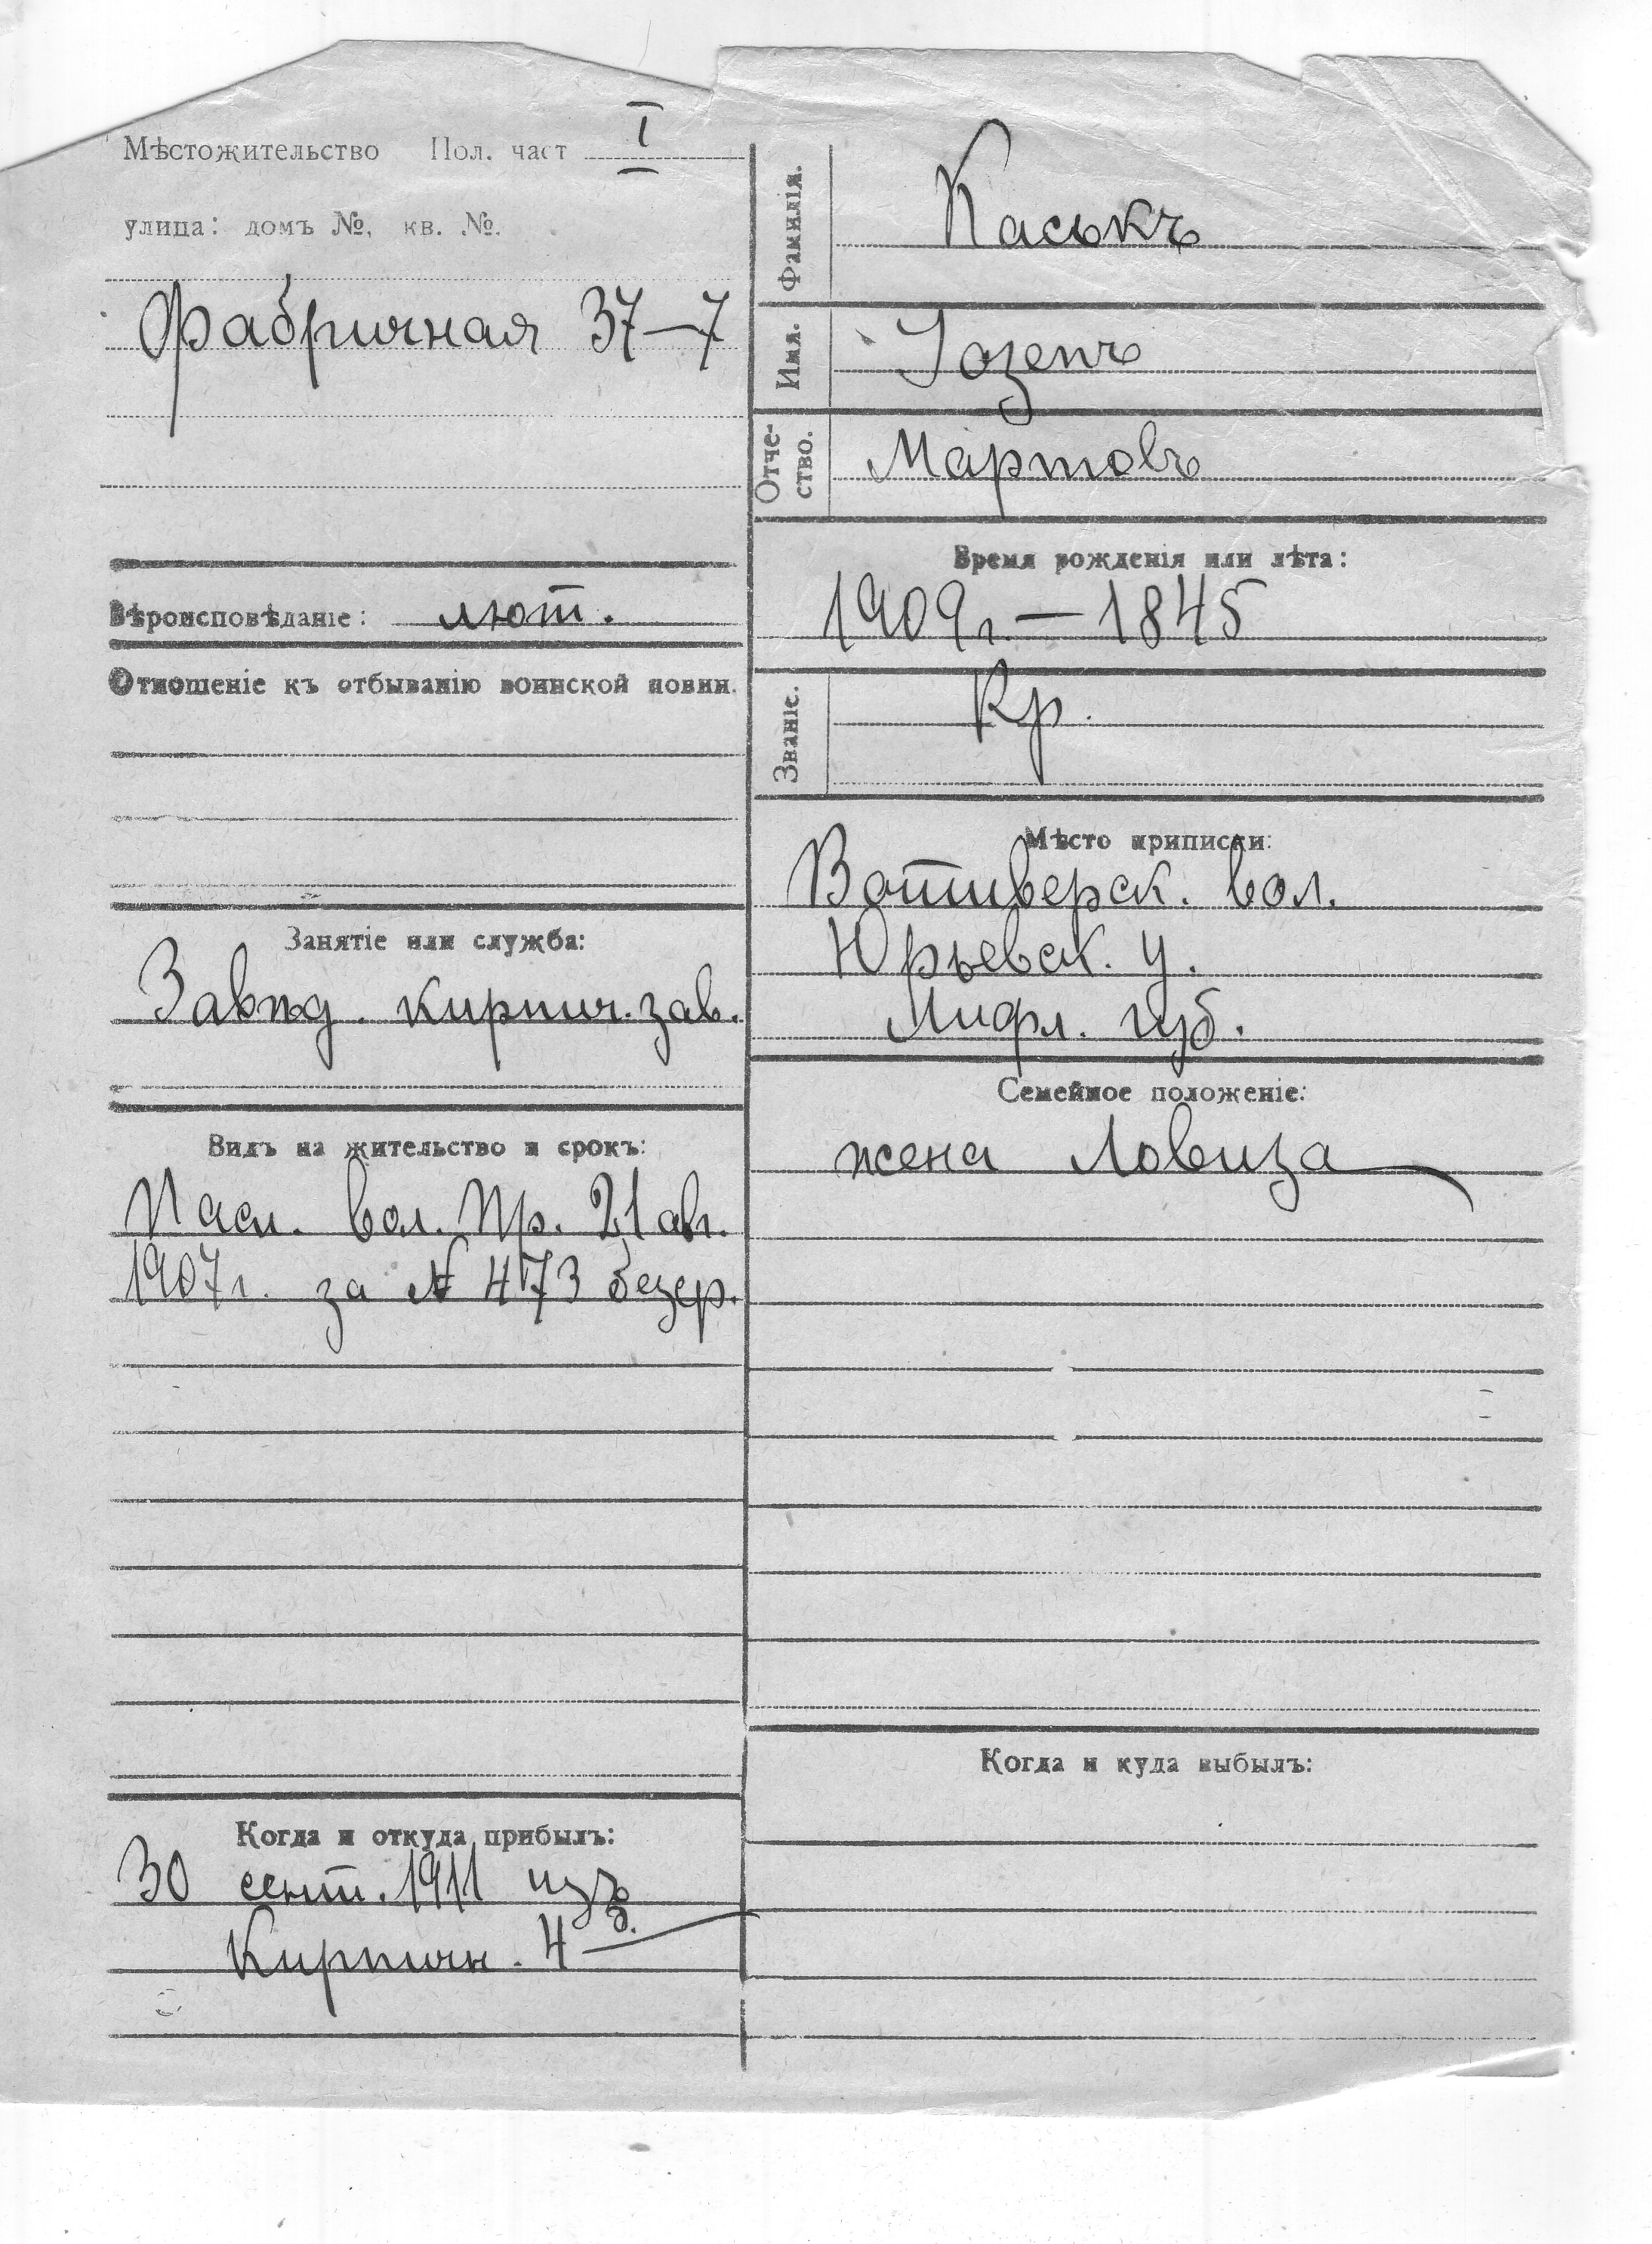 Мѣстожительство Пол. част I
улица: домъ №, кв. №.
Фабричная 37—7
Вѣроисповѣданіе: лют.
Отношеніе къ отбыванію воинской повин.
Занятіе или служба:
Завѣд. кирпич. зав.
Видъ на жительство и срокъ:
Пасп. вол. пр. 21 авг.
1907 г. за № 473 безср.
Когда и откуда прибылъ:
30 сент. 1911 изъ
Кирпичн. 4
Фамилія. Каськъ
Имя. Іозепъ
Отчество. Мартовъ
Время рожденія или лѣта:
1909 г. — 1845
Званіе. Кр.
Мѣсто приписки:
Вотиверск. вол.
Юрьевск. у.
Лифл. губ.
Семейное положеніе:
жена Ловиза
Когда и куда выбылъ: